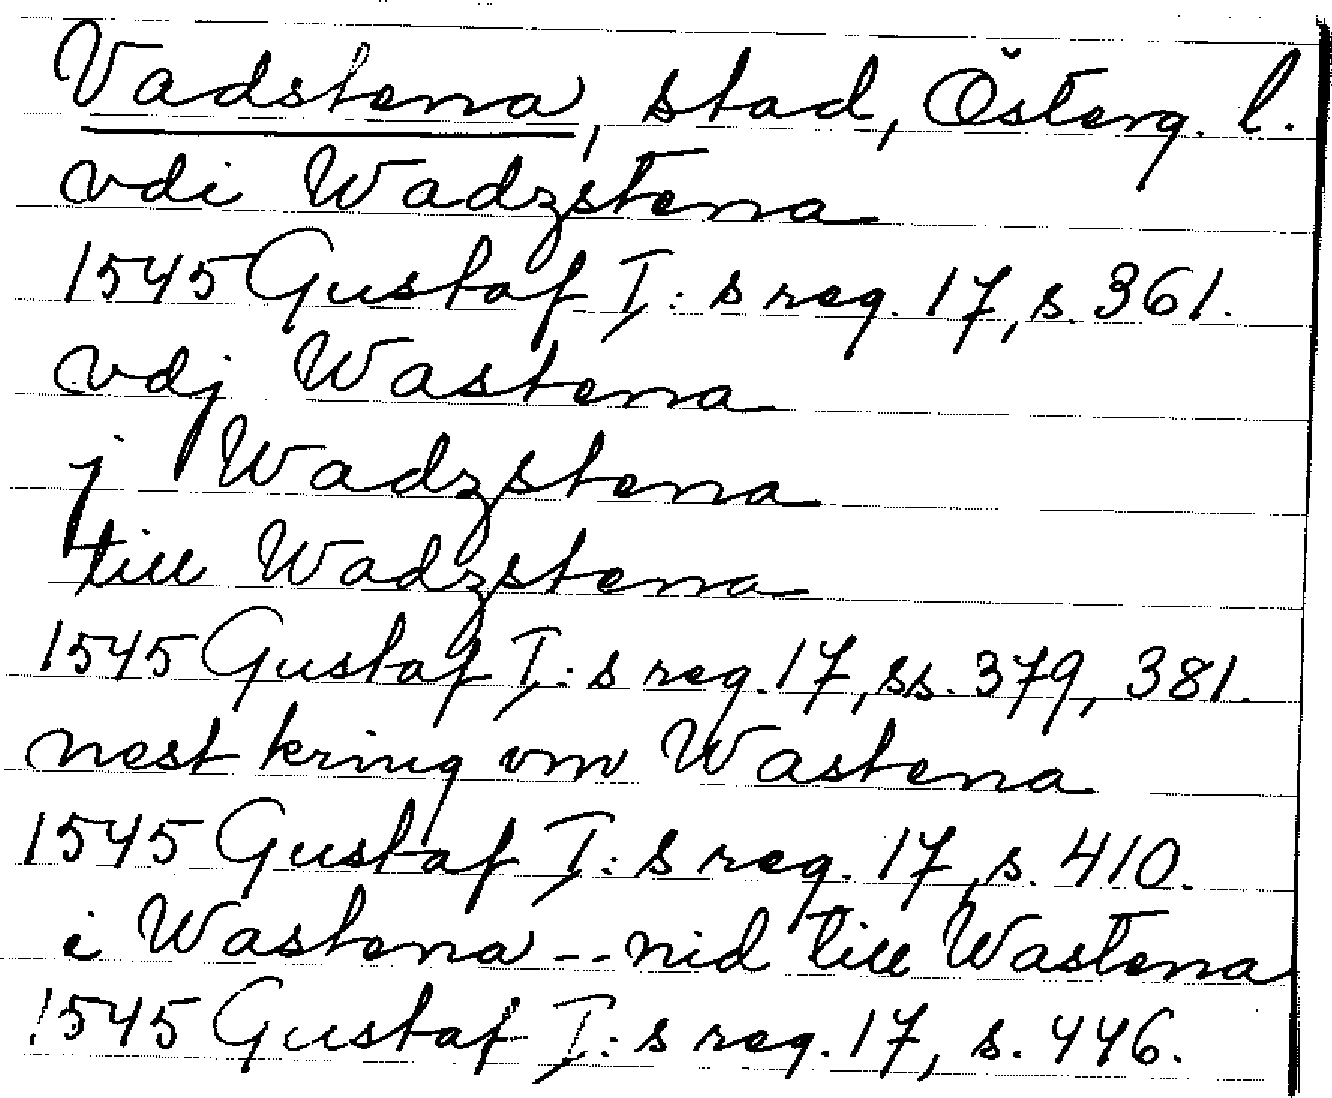 Vadstena, stad, Österg. l.
vdi Wadzstena
1545 Gustaf I:s reg. 17, s. 361.
vdj Wastena
j Wadzstena
till Wadzstena
1545 Gustaf I:s reg. 17, ss. 379, 381.
nest kring vm Wastena
1545 Gustaf I:s reg. 17, s. 410.
i Wastena -- nid till Wastena
1545 Gustaf I:s reg. 17, s. 446.